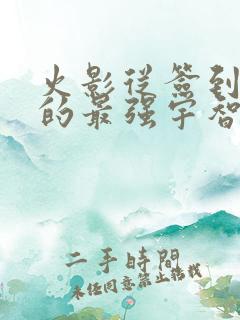 火影从签到
的最强宇智
二手時間
未经同意禁止转载